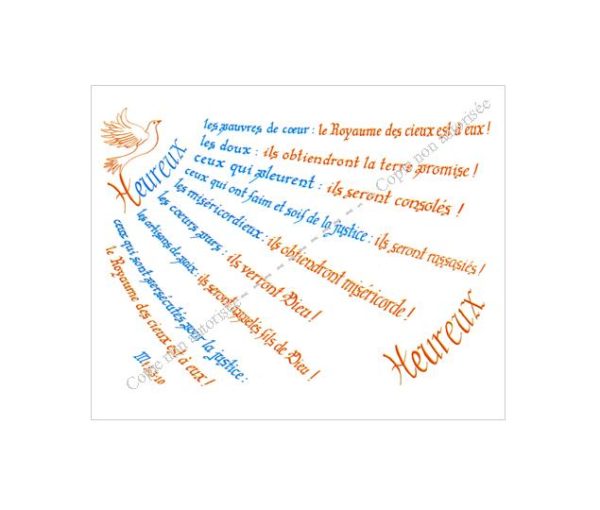 Heureux
les pauvres de cœur : le Royaume des cieux est à eux !
les doux : ils obtiendront la terre promise !
ceux qui pleurent : ils seront consolés !
ceux qui ont faim et soif de la justice : ils seront rassasiés !
les miséricordieux : ils obtiendront miséricorde !
les cœurs purs : ils verront Dieu !
les artisans de paix : ils seront appelés fils de Dieu !
ceux qui sont persécutés pour la justice :
le Royaume des cieux est à eux !
Heureux
Copie non autorisée
Copie non autorisée